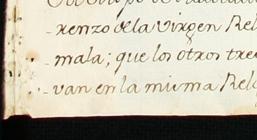 -renzo de la Virgen Rel
-mala; que los otros tre
-van en la misma Relg